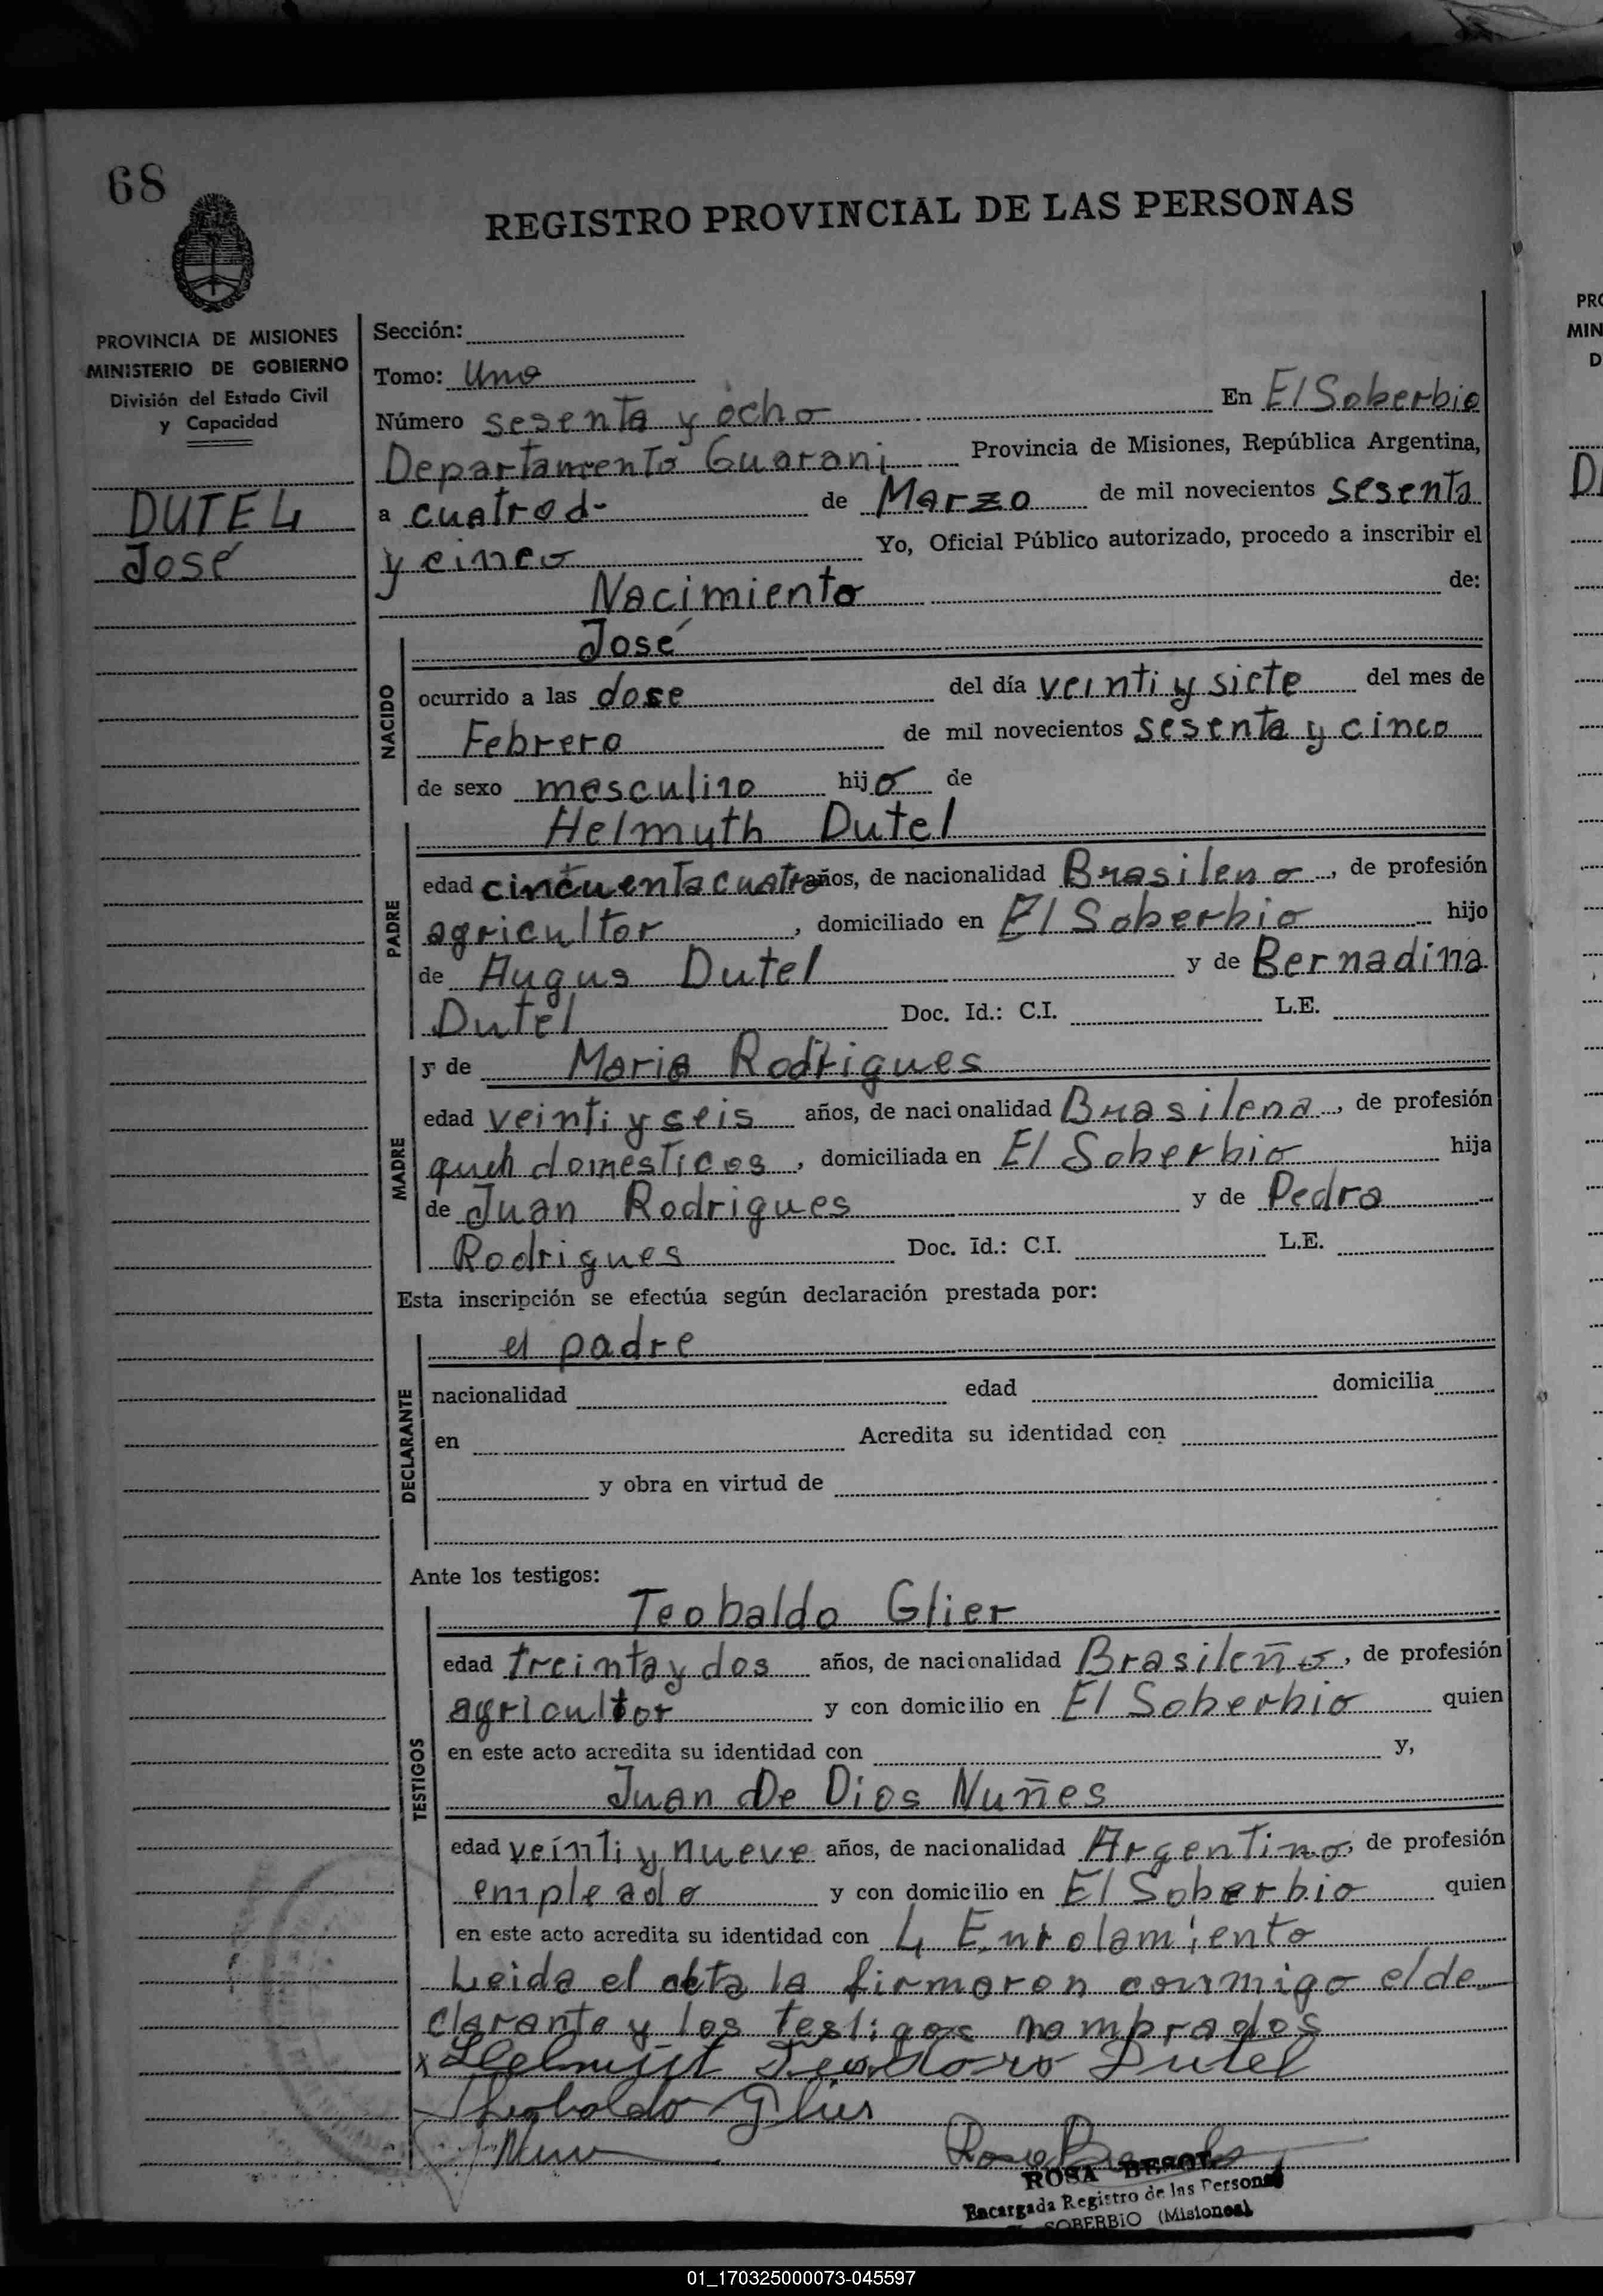 68
REGISTRO PROVINCIAL DE LAS PERSONAS
PROVINCIA DE MISIONES
MINISTERIO DE GOBIERNO
División del Estado Civil
y Capacidad
DUTEL
José
Sección:
Tomo: Uno
Número sesenta y ocho En El Soberbio
Departamento Guarani Provincia de Misiones, República Argentina,
a cuatro d- de Marzo de mil novecientos sesenta
y cinco Yo, Oficial Público autorizado, procedo a inscribir el
Nacimiento de:
NACIDO
José
ocurrido a las dose del día veinti y siete del mes de
Febrero de mil novecientos sesenta y cinco
de sexo masculino hijo de
PADRE
Helmuth Dutel
edad cincuenta cuatro años, de nacionalidad Brasileno, de profesión
agricultor, domiciliado en El Soberbio hijo
de Augus Dutel y de Bernadina
Dutel Doc. Id.: C.I. L.E.
MADRE
y de Maria Rodrigues
edad veinti y seis años, de nacionalidad Brasilena, de profesión
domesticos, domiciliada en El Soberbio hija
de Juan Rodrigues y de Pedra
Rodrigues Doc. Id.: C.I. L.E.
Esta inscripción se efectúa según declaración prestada por:
DECLARANTE
el padre
nacionalidad edad domicilia
en Acredita su identidad con
y obra en virtud de
Ante los testigos:
TESTIGOS
Teobaldo Glier
edad treinta y dos años, de nacionalidad Brasileño, de profesión
agricultor y con domicilio en El Soberbio quien
en este acto acredita su identidad con y,
Juan De Dios Nuñes
edad veinti y nueve años, de nacionalidad Argentino, de profesión
empleado y con domicilio en El Soberbio quien
en este acto acredita su identidad con L Enrolamiento
Leida el acta la firmaron conmigo el de
clarante y los testigos nombrados
x Helmuth Teodoro Dutel
Theobaldo Glier
ROSA BESOL
Encargada Registro de las Personas
SOBERBIO (Misiones)
01_170325000073-045597